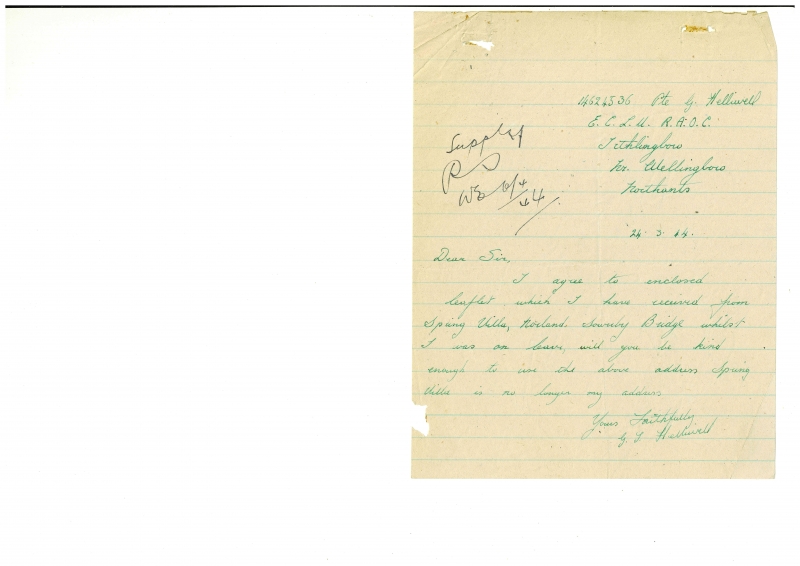 4624536 Pte G. Helliwell
E. C. L. U. R.A.O.C.
Irthlingboro
Nr. Wellingboro
Northants
24. 3. 44.
Supply
WE 6/4/44
Dear Sir,
I agree to enclosed
leaflet, which I have received from
Spring Villa, Norland, Sowerby Bridge whilst
I was on leave, will you be kind
enough to use the above address Spring
Villa is no longer my address
Yours Faithfully
G. Helliwell